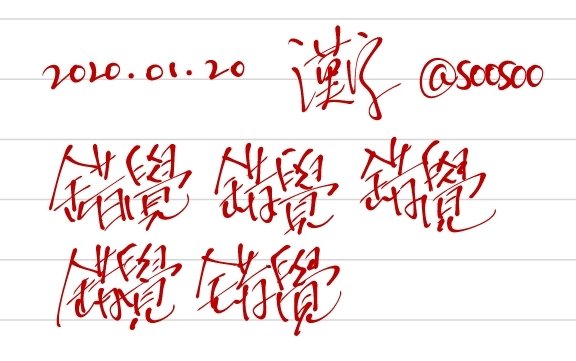 2020.01.20 漢字 @soosoo
錯覺 錯覺 錯覺
錯覺 錯覺